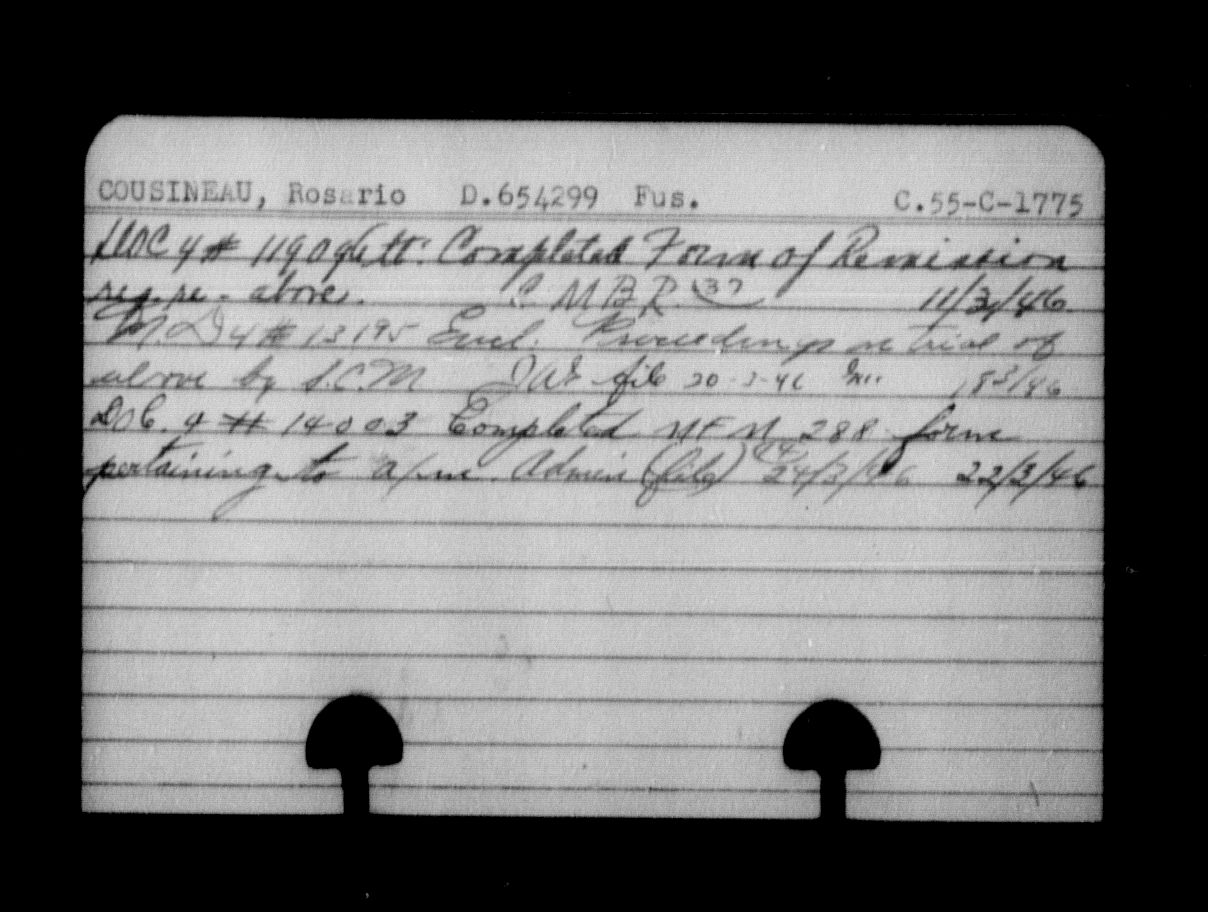 COUSINEAU, Rosario D.654299 Fus. C.55-C-1775
DOC 4 # 11909 Att: Completed Form of Remission
reg. re. above. M B R. (37) 11/3/46
M.D 4 # 13195 Encl. Proceedings re trial of
above by S.C.M file 20-3-46 18 3/46
DOC. 4 # 14003 Completed MFM 288 form
pertaining to a/m. Admin (file) 24/3/46 22/3/46